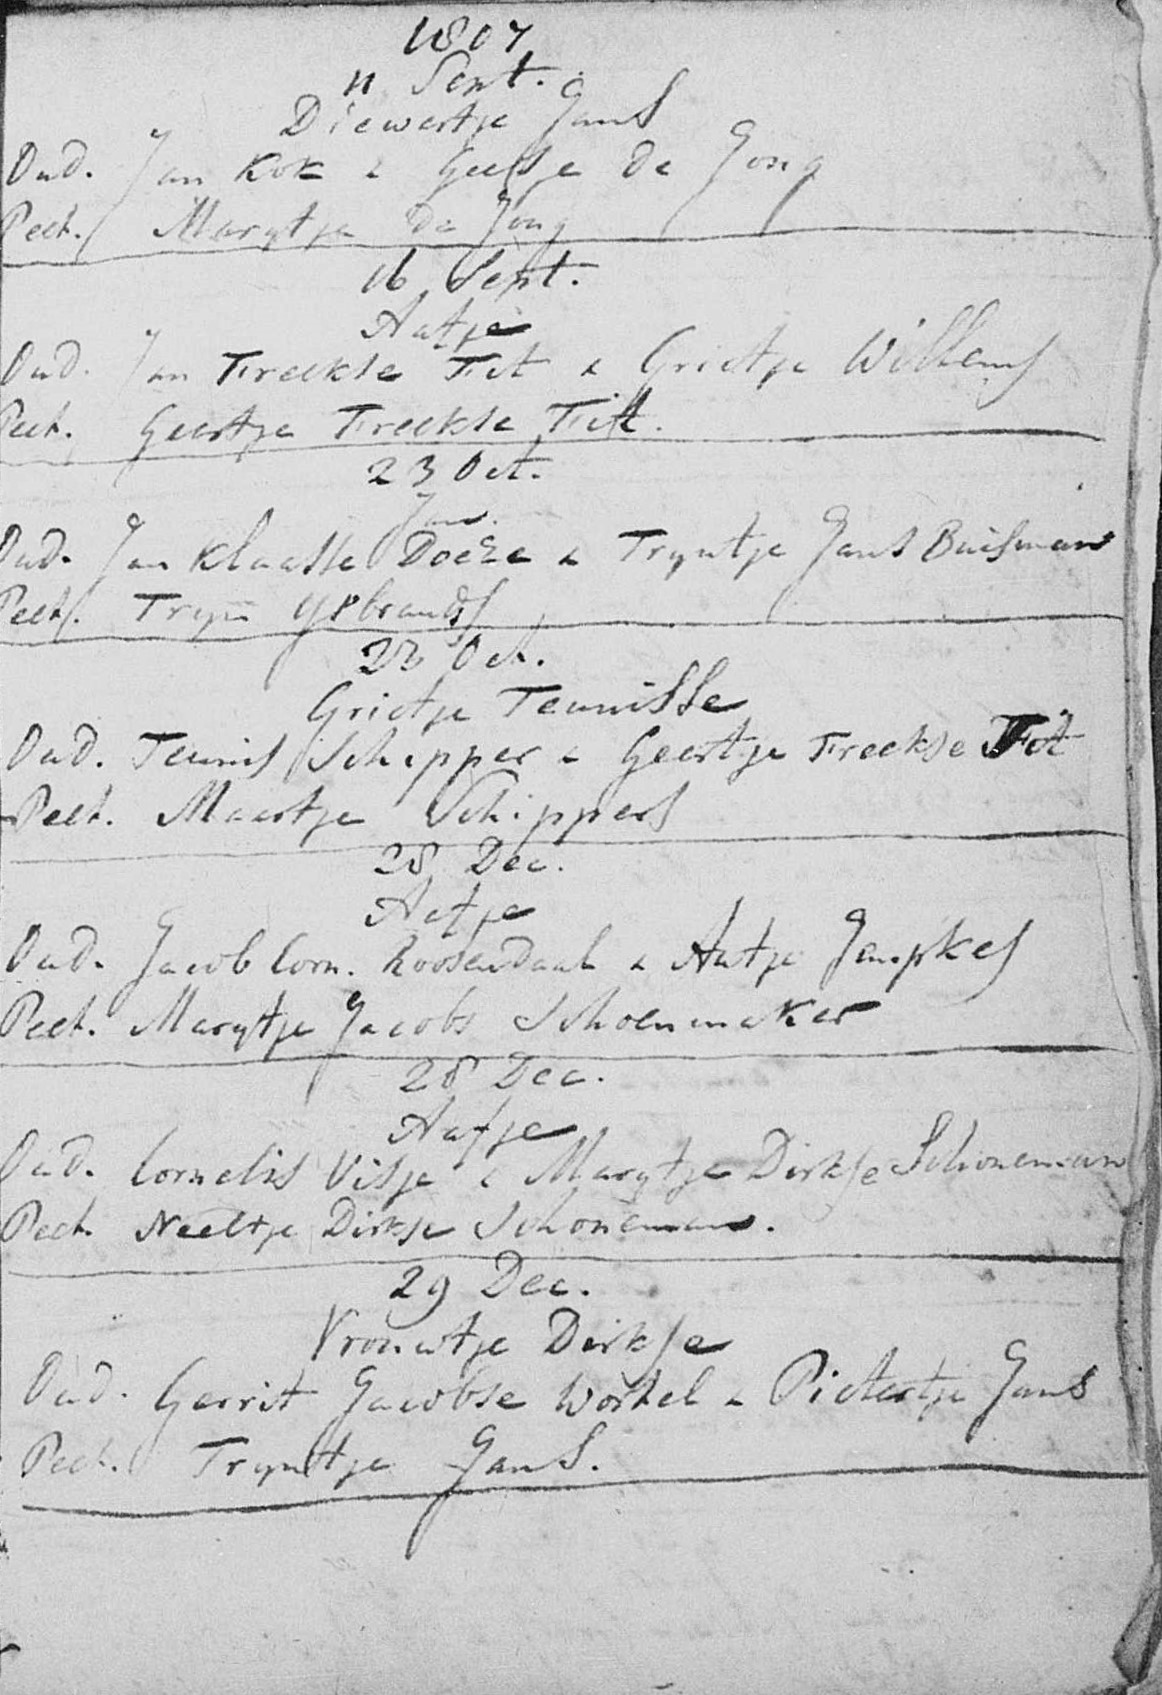 1807
11 Sept.
Diewertje Jans
Oud. Jan Kok & Geesje de Jong
Peet. Marytje de Jong
16 Sept.
Aatje
Oud. Jan Freekse Fit & Grietje Willems
Peet. Geertje Freekse Fit.
23 Oct.
Jan.
Oud. Jan Klaasse Doeze & Tryntje Jans Buisman
Peet. Tryn Ysbrands
23 Oct.
Grietje Teunisse
Oud. Teunis Schipper & Geertje Freekse Fit
Peet. Maartje Schippers
28 Dec.
Aatje
Oud. Jacob Corn. Roosendaal & Aatje Jempkes
Peet. Marytje Jacobs Schoenmaker
28 Dec.
Aafje
Oud. Cornelis Visje & Marytje Dirkse Schoneman
Peet. Neeltje Dirkse Schoneman.
29 Dec.
Vrouwtje Dirkse
Oud. Gerrit Jacobse Workel & Pietertje Jans
Peet. Tryntje Jans.